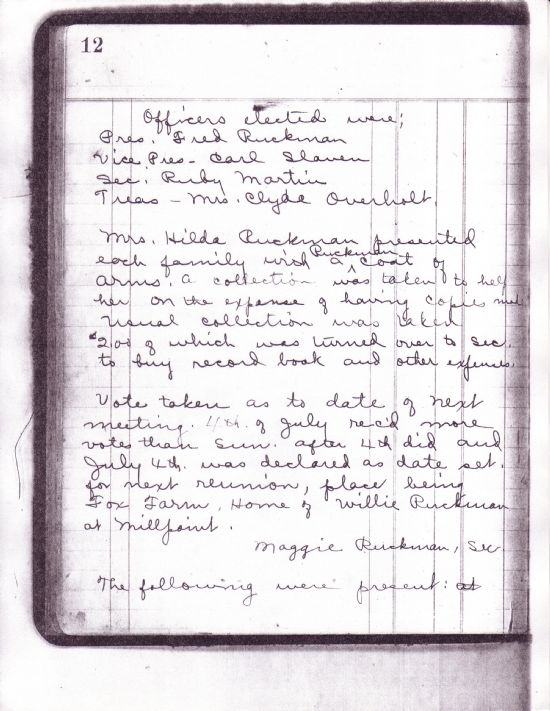 12
Officers elected were;
Pres. Fred Ruckman
Vice Pres - Carl Slaven
Sec. Ruby Martin
Treas - Mrs. Clyde Overholt.
Mrs. Hilda Ruckman presented
each family with a Ruckman coat of
arms. A collection was taken to help
her on the expense of having copies
Usual collection was taken
$2.00 of which was turned over to Sec.
to buy record book and other expenses.
Vote taken as to date of next
meeting. 4th. of July rec'd more
votes than Sun. after 4th did and
July 4th. was declared as date set
for next reunion, place being
Fox Farm, Home of Willie Ruckman
at Millpoint.
Maggie Ruckman, Sec.
The following were present: